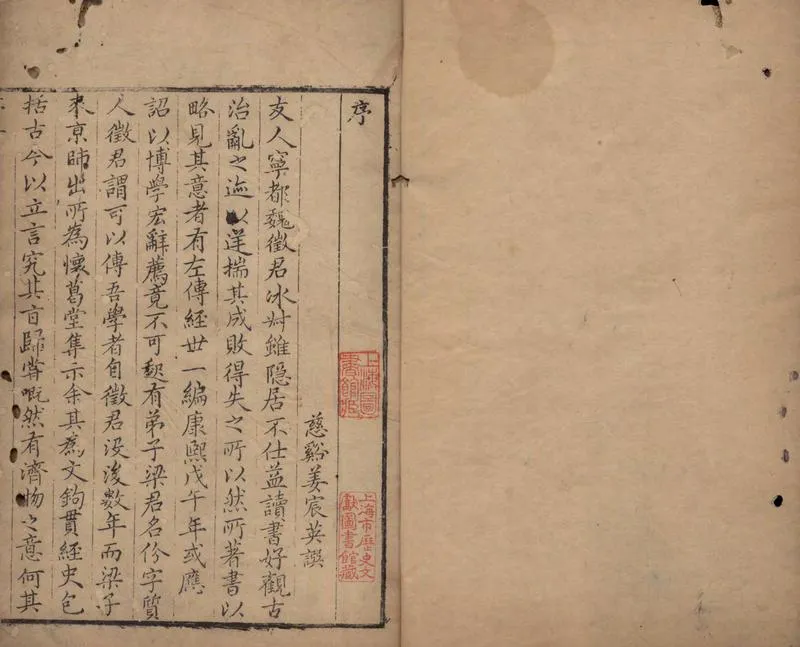 序
慈谿姜宸英譔
友人寧都魏徵君冰叔雖隐居不仕益讀書好觀古
治亂之迹以逆揣其成敗得失之所以然所著書以
略見其意者有左傳經世一編康熙戊午年或應
詔以博學宏辭薦竟不可起有弟子梁君名份字質
人徵君謂可以傳吾學者自徵君没後數年而梁子
来京師出所為懷葛堂集示余其為文鉤貫經史包
括古今以立言究其㫖歸常嘅然有濟物之意何其
上海圖書館藏
上海市歷史文獻圖書館藏